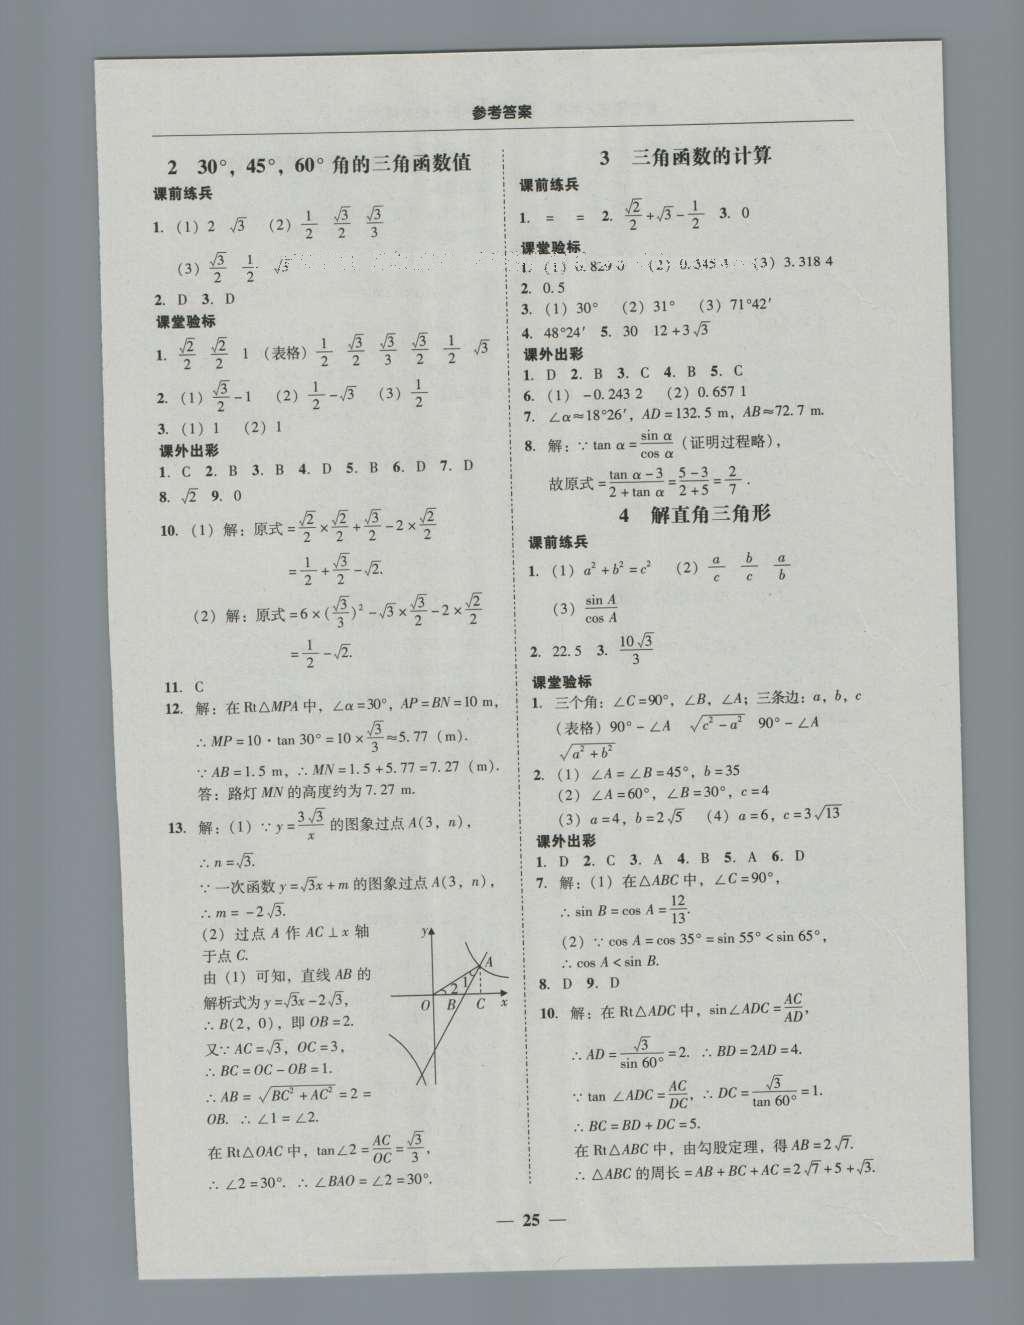 参考答案
2 30°，45°，60°角的三角函数值
课前练兵
1. (1) 2 √3 (2) 1/2 √3/2 √3/3
(3) √3/2 1/2 √3
2. D 3. D
课堂验标
1. √2/2 √2/2 1 (表格) 1/2 √3/2 √3/3 √3/2 1/2 √3
2. (1) √3/2-1 (2) 1/2-√3 (3) 1/2
3. (1) 1 (2) 1
课外出彩
1. C 2. B 3. B 4. D 5. B 6. D 7. D
8. √2 9. 0
10. (1) 解：原式=√2/2×√2/2+√3/2-2×√2/2
=1/2+√3/2-√2.
(2) 解：原式=6×(√3/3)²-√3×√3/2-2×√2/2
=1/2-√2.
11. C
12. 解：在Rt△MPA中，∠α=30°，AP=BN=10 m，
∴MP=10·tan 30°=10×√3/3≈5.77 (m).
∵AB=1.5 m，∴MN=1.5+5.77=7.27 (m).
答：路灯MN的高度约为7.27 m.
13. 解：(1) ∵y=3√3/x的图象过点A(3，n)，
∴n=√3.
∵一次函数y=√3x+m的图象过点A(3，n)，
∴m=-2√3.
(2) 过点A作AC⊥x轴
于点C.
由(1)可知，直线AB的
解析式为y=√3x-2√3，
∴B(2，0)，即OB=2.
又∵AC=√3，OC=3，
∴BC=OC-OB=1.
∴AB=√(BC²+AC²)=2=
OB. ∴∠1=∠2.
y
A
2 1
O B C x
在Rt△OAC中，tan∠2=AC/OC=√3/3，
∴∠2=30°. ∴∠BAO=∠2=30°.
3 三角函数的计算
课前练兵
1. = = 2. √2/2+√3-1/2 3. 0
课堂验标
1. (1) 0.829 0 (2) 0.345 4 (3) 3.318 4
2. 0.5
3. (1) 30° (2) 31° (3) 71°42′
4. 48°24′ 5. 30 12+3√3
课外出彩
1. D 2. B 3. C 4. B 5. C
6. (1) -0.243 2 (2) 0.657 1
7. ∠α≈18°26′，AD=132.5 m，AB≈72.7 m.
8. 解：∵tan α=sin α/cos α (证明过程略)，
故原式=(tan α-3)/(2+tan α)=(5-3)/(2+5)=2/7.
4 解直角三角形
课前练兵
1. (1) a²+b²=c² (2) a/c b/c a/b
(3) sin A/cos A
2. 22.5 3. 10√3/3
课堂验标
1. 三个角：∠C=90°，∠B，∠A；三条边：a，b，c
(表格) 90°-∠A √(c²-a²) 90°-∠A
√(a²+b²)
2. (1) ∠A=∠B=45°，b=35
(2) ∠A=60°，∠B=30°，c=4
(3) a=4，b=2√5 (4) a=6，c=3√13
课外出彩
1. D 2. C 3. A 4. B 5. A 6. D
7. 解：(1) 在△ABC中，∠C=90°，
∴sin B=cos A=12/13.
(2) ∵cos A=cos 35°=sin 55°<sin 65°，
∴cos A<sin B.
8. D 9. D
10. 解：在Rt△ADC中，sin∠ADC=AC/AD，
∴AD=√3/sin 60°=2. ∴BD=2AD=4.
∵tan ∠ADC=AC/DC，∴DC=√3/tan 60°=1.
∴BC=BD+DC=5.
在Rt△ABC中，由勾股定理，得AB=2√7.
∴△ABC的周长=AB+BC+AC=2√7+5+√3.
— 25 —